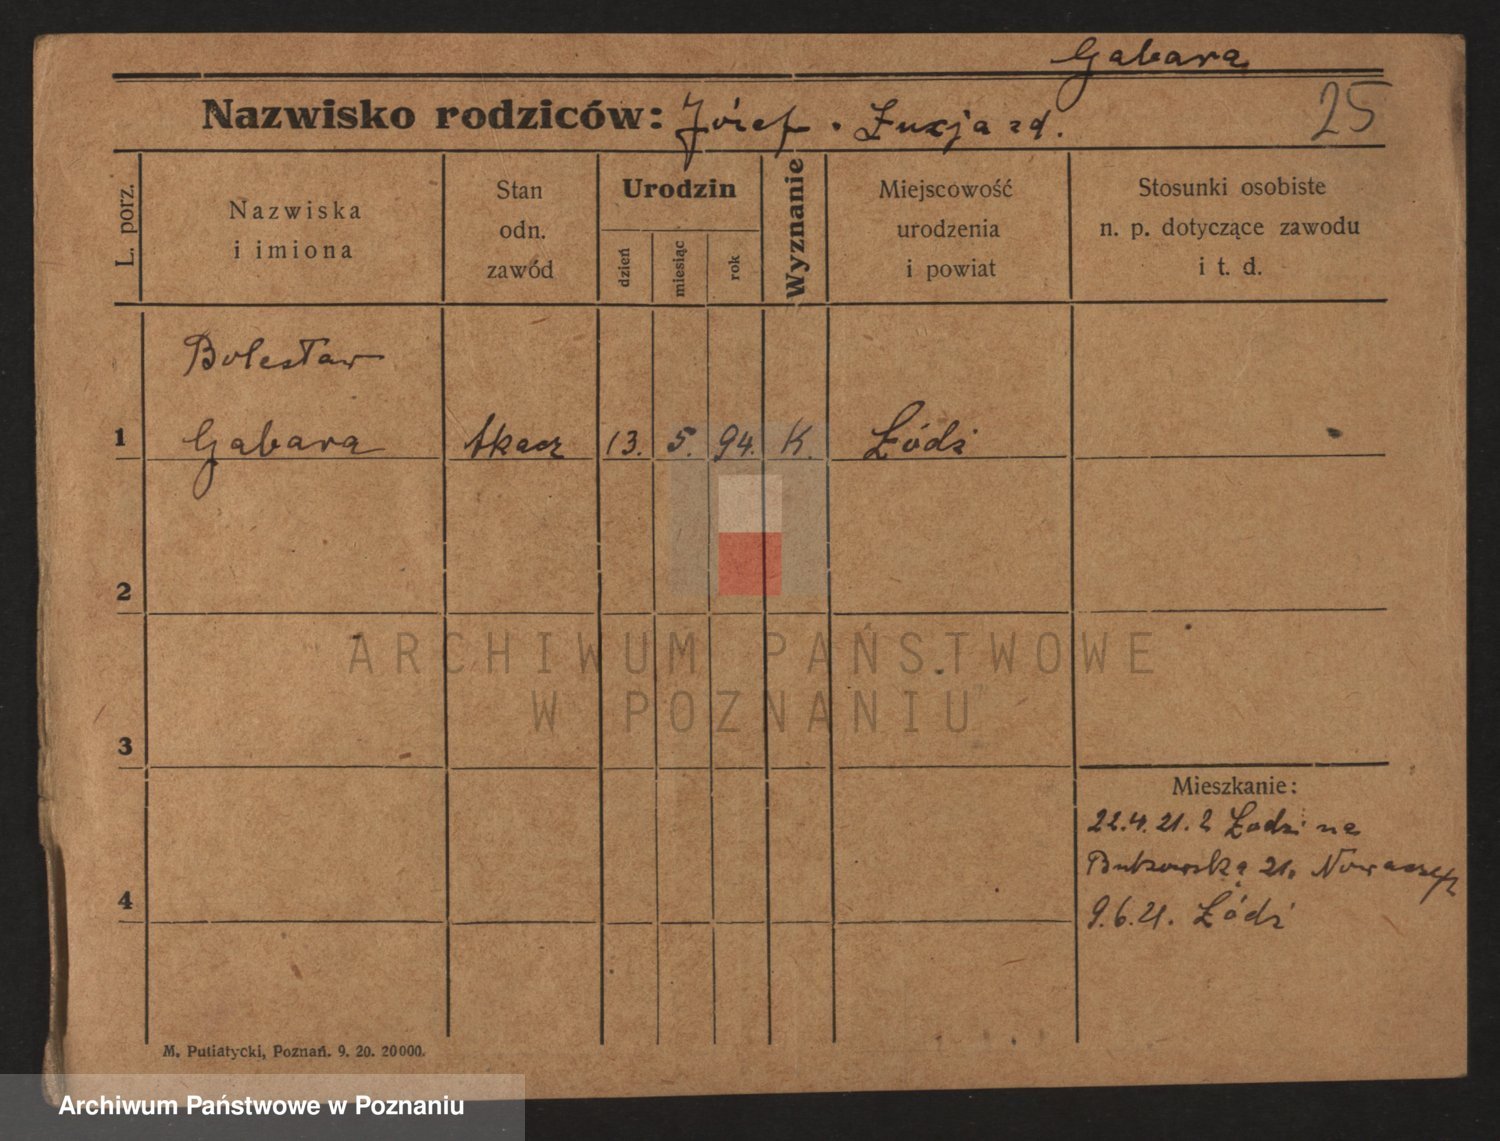 Gabara
Nazwisko rodziców: Józef . Łucja zd.
25
L. porz.
Nazwiska
i imiona
Stan
odn.
zawód
Urodzin
dzień
miesiąc
rok
Wyznanie
Miejscowość
urodzenia
i powiat
Stosunki osobiste
n. p. dotyczące zawodu
i t. d.
Bolesław
1 Gabara tkacz 13. 5. 94. K. Łódź
2
"ARCHIWUM PAŃSTWOWE
W POZNANIU"
3
Mieszkanie:
22.4.21. z Łodzi na
Bukowską 21.
4
9.6.21. Łódź
M. Putiatycki, Poznań. 9. 20. 20000.
Archiwum Państwowe w Poznaniu